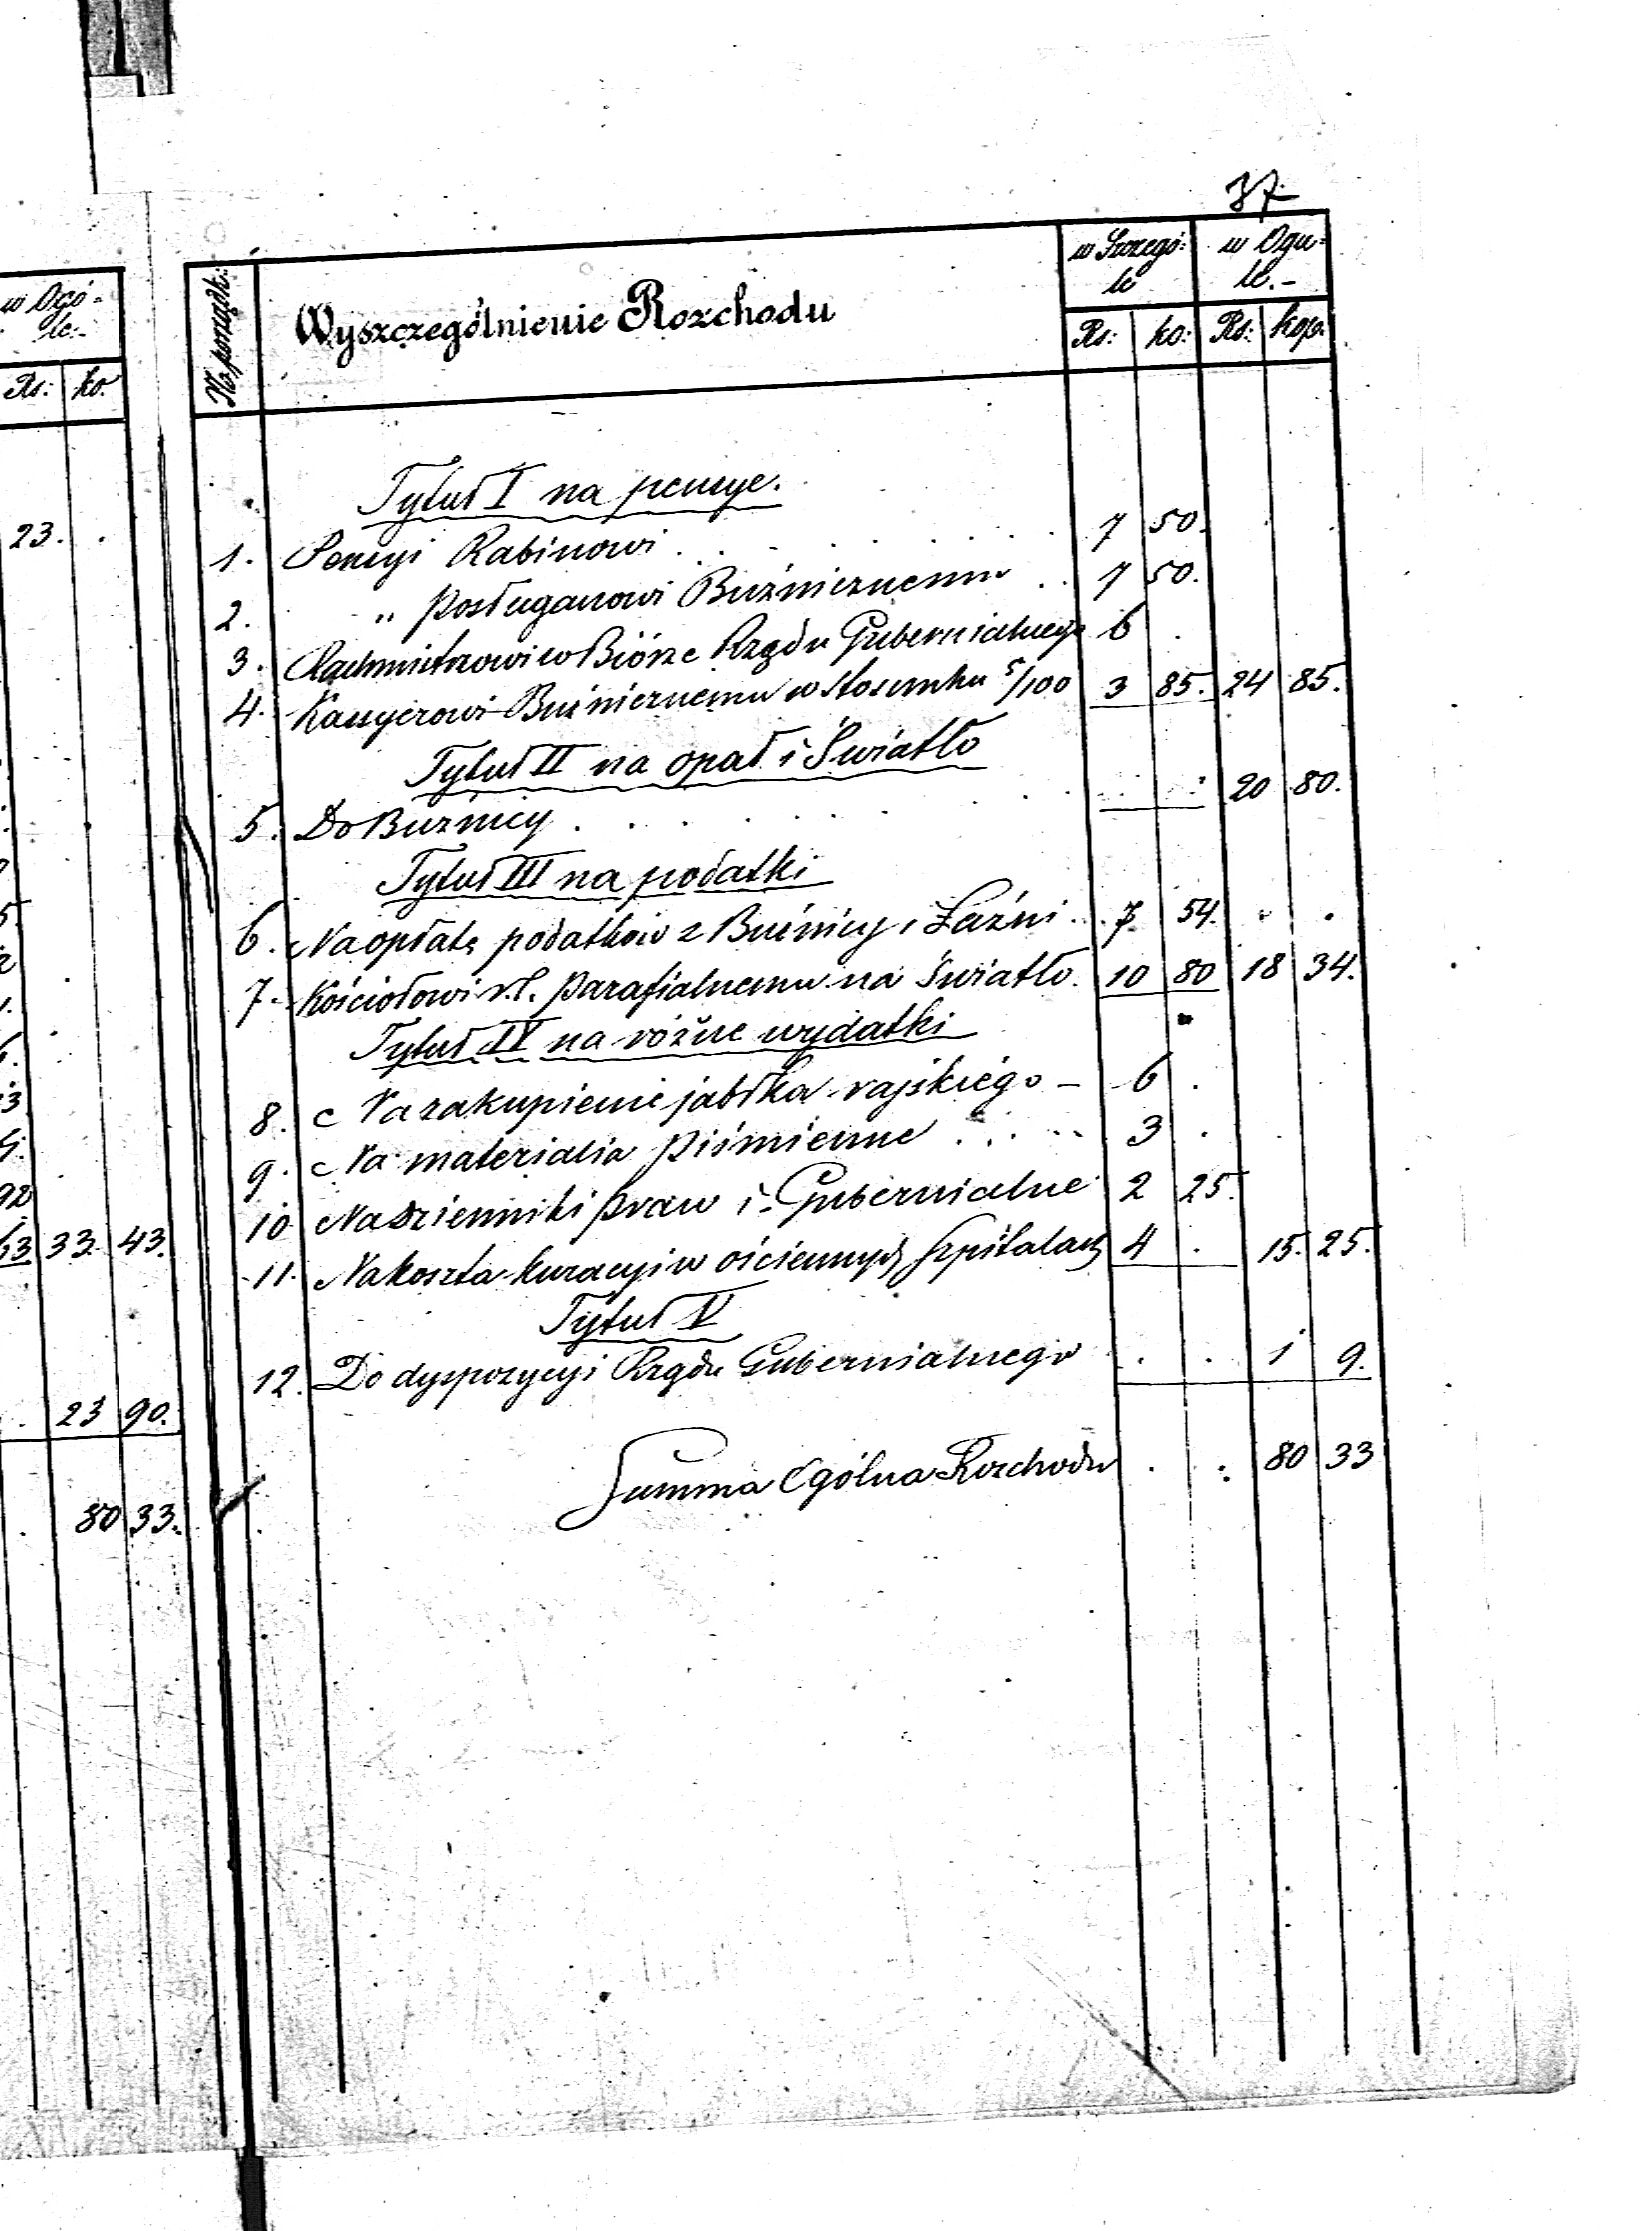 37.
w Ogó-
le:-
Rs: ko.
23. .
33. 43.
. 23 90.
. 80 33.
No porządk: Wyszczególnienie Rozchodu w Szczegó: w Ogu-
le le.-
Rs: ko: Rs: Kop:
Tytuł I na pensye.
1. Pensyi Rabinowi . . . . . 7 50. . .
2. " Posługanowi Buźnicznemu . . 7 50.
3. Rachmistrzowi w Biórze Rządu Gubernialnego 6 .
4. Kassyerowi Buźnicznemu w stosunku 5/100 3 85. 24 85.
Tytuł II na opał i Światło
5. Do Buźnicy . . . . . . . . 20 80.
Tytuł III na podatki
6. Na opłatę podatków z Buźnicy i Łaźni . . 7. 54. . .
7. Kościołowi r.l. Parafialnemu na Światło. 10 80 18 34.
Tytuł IV na różne wydatki
8. Na zakupienie jabłka rajskiego - 6 .
9. Na materialia piśmienne . . . 3 .
10 Na Dzienniki praw i Gubernialne 2 25.
11. Na koszta kuracyi w ościennych Szpitalach 4 . 15. 25.
Tytuł V
12. Do dyspozycyi Rządu Gubernialnego . . 1 9.
Summa Ogólna Rozchodu . . 80 33